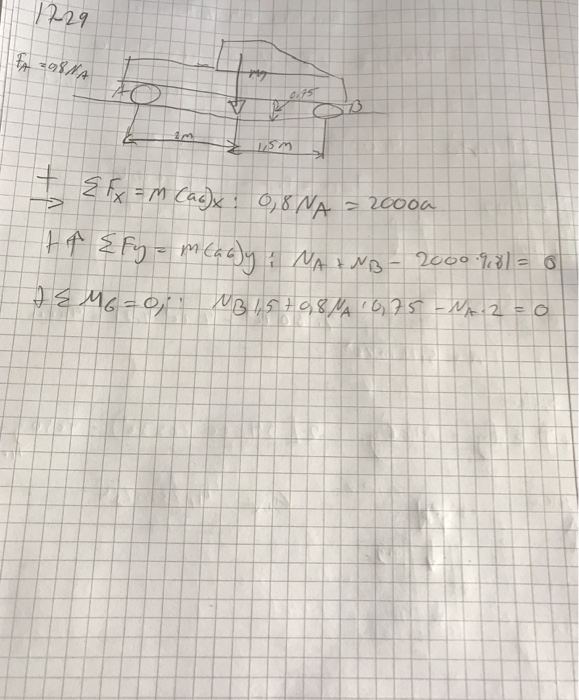 17-29
FA = 0,8 NA
A
mg
0,75
B
2m
1,5m
+→ ΣFx = m(aG)x : 0,8 NA = 2000a
+↑ ΣFy = m(aG)y : NA + NB - 2000·9,81 = 0
ΣMG = 0; : NB 1,5 + 0,8 NA · 0,75 - NA · 2 = 0